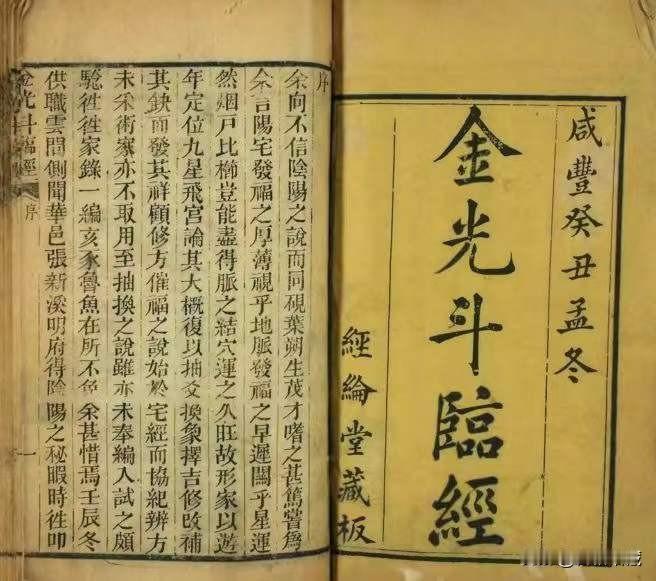 咸豐癸丑孟冬
金光斗臨經
經綸堂藏板
序
余向不信陰陽之說而同硯葉朔生茂才嗜之甚篤嘗爲
余言陽宅發福之厚薄視乎地脈發福之早遲關乎星運
然烟戸比櫛豈能盡得脈之結穴運之久旺故形家以遊
年定位九星飛宮論其大概復以抽爻換象擇吉修改補
其缺而發其祥顧修方催福之說始於宅經而協紀辨方
未采術家亦不取用至抽換之說雖亦未奉編入試之頗
驗徃徃家錄一編亥豕魯魚在所不免余甚惜焉壬辰冬
供職雲間側聞華邑張新溪明府得陰陽之秘暇時徃叩
金光斗臨經
序
一